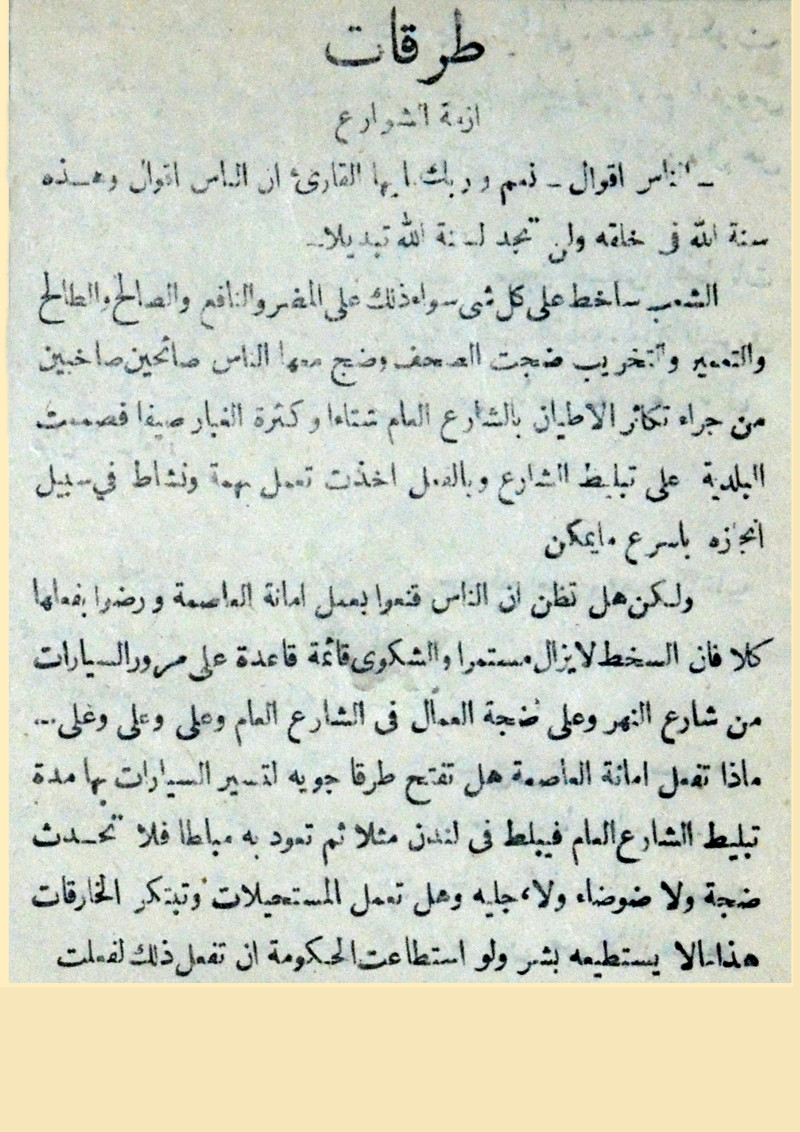 طرقات
ازمة الشوارع
ـ الناس اقوال ـ نعم وربك ايها القارئ ان الناس اقوال وهـذه
سنة الله في خلقه ولن تجد لسنة الله تبديلا ـ
الشعب ساخط على كل شى سواء ذلك على المضر والنافع والصالح والطالح
والتعمير والتخريب ضجت الصحف وضج معها الناس صائحين صاخبين
من جراء تكاثر الاطيان بالشارع العام شتاءا وكثرة الغبار صيفا فصممت
البلدية على تبليط الشارع وبالفعل اخذت تعمل بهمة ونشاط في سبيل
انجازه باسرع مايمكن
ولكن هل تظن ان الناس قنعوا بعمل امانة العاصمة ورضوا بفعلها
كلا فان السخط لايزال مستمرا والشكوى قائمة قاعدة على مرور السيارات
من شارع النهر وعلى ضجة العمال فى الشارع العام وعلى وعلى وعلى ...
ماذا تفعل امانة العاصمة هل تفتح طرقا جويه لتسير السيارات بها مدة
تبليط الشارع العام فيبلط فى لندن مثلا ثم تعود به مباطا فلا تحـدث
ضجة ولا ضوضاء ولا جلبه وهل تعمل المستحيلات وتبتكر الخارقات
هذا مالا يستطيعه بشر ولو استطاعت الحكومة ان تفعل ذلك لفعلت